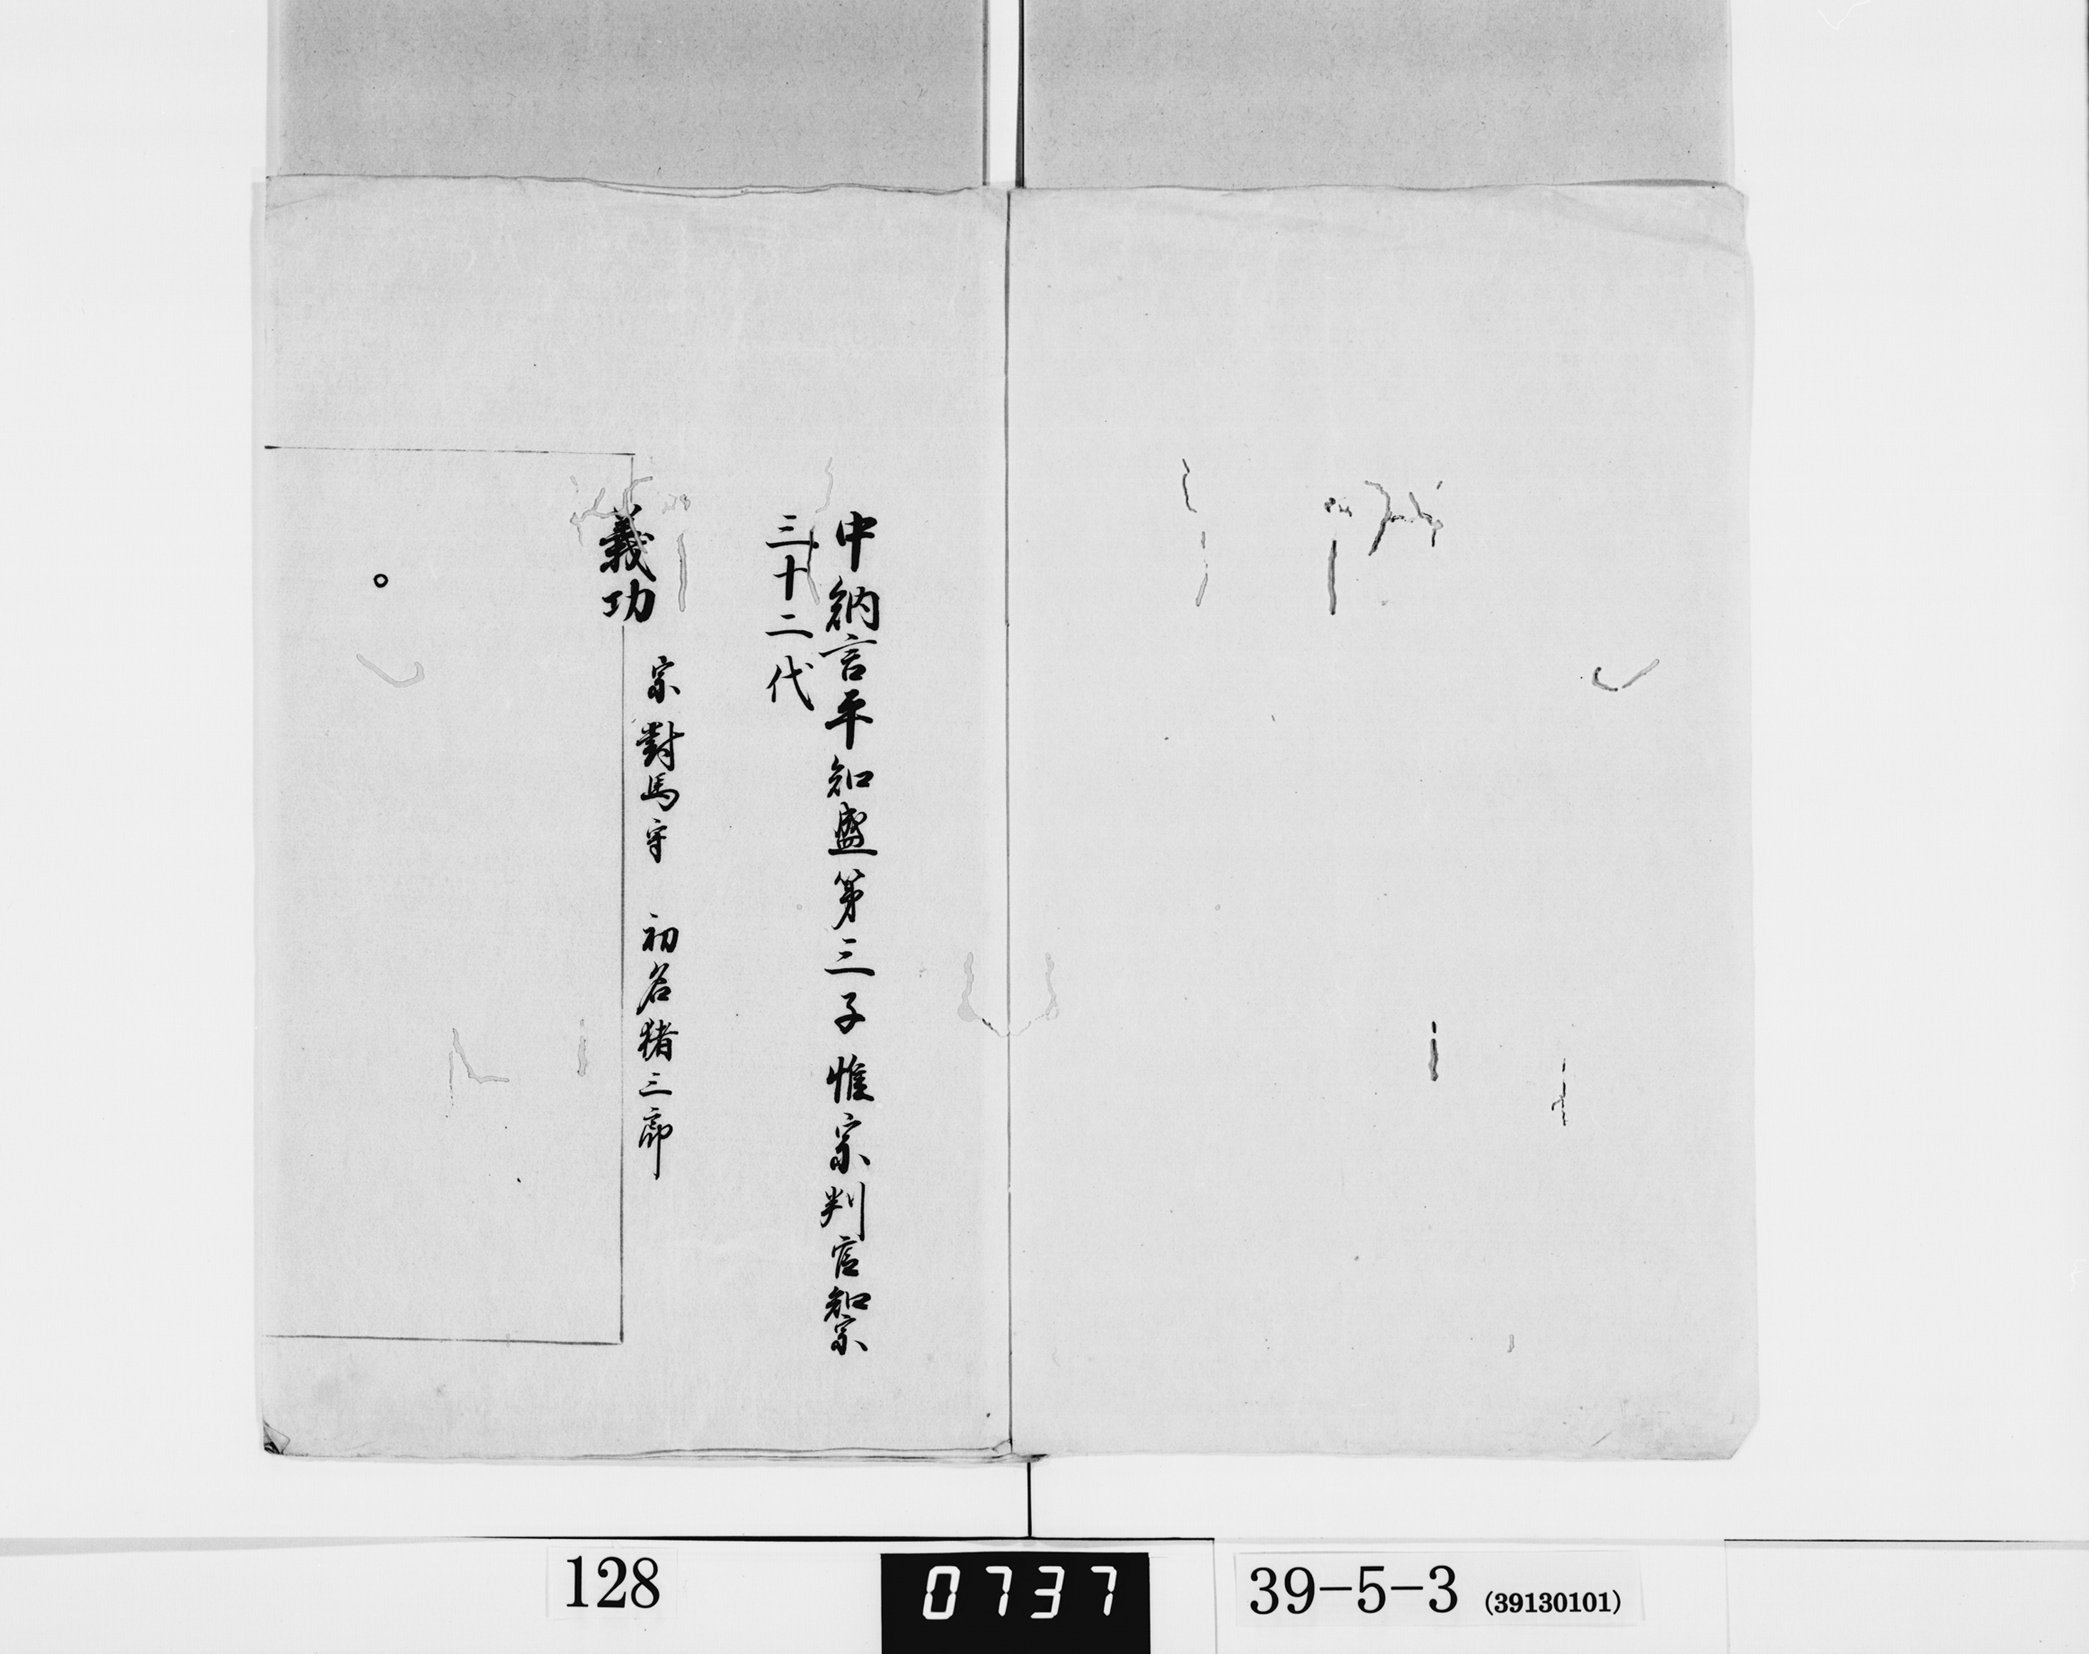 中納言平知盛第三子惟宗判官知宗
三十二代
義功
宗對馬守　初名猪三郎
128
0737
39-5-3 (39130101)